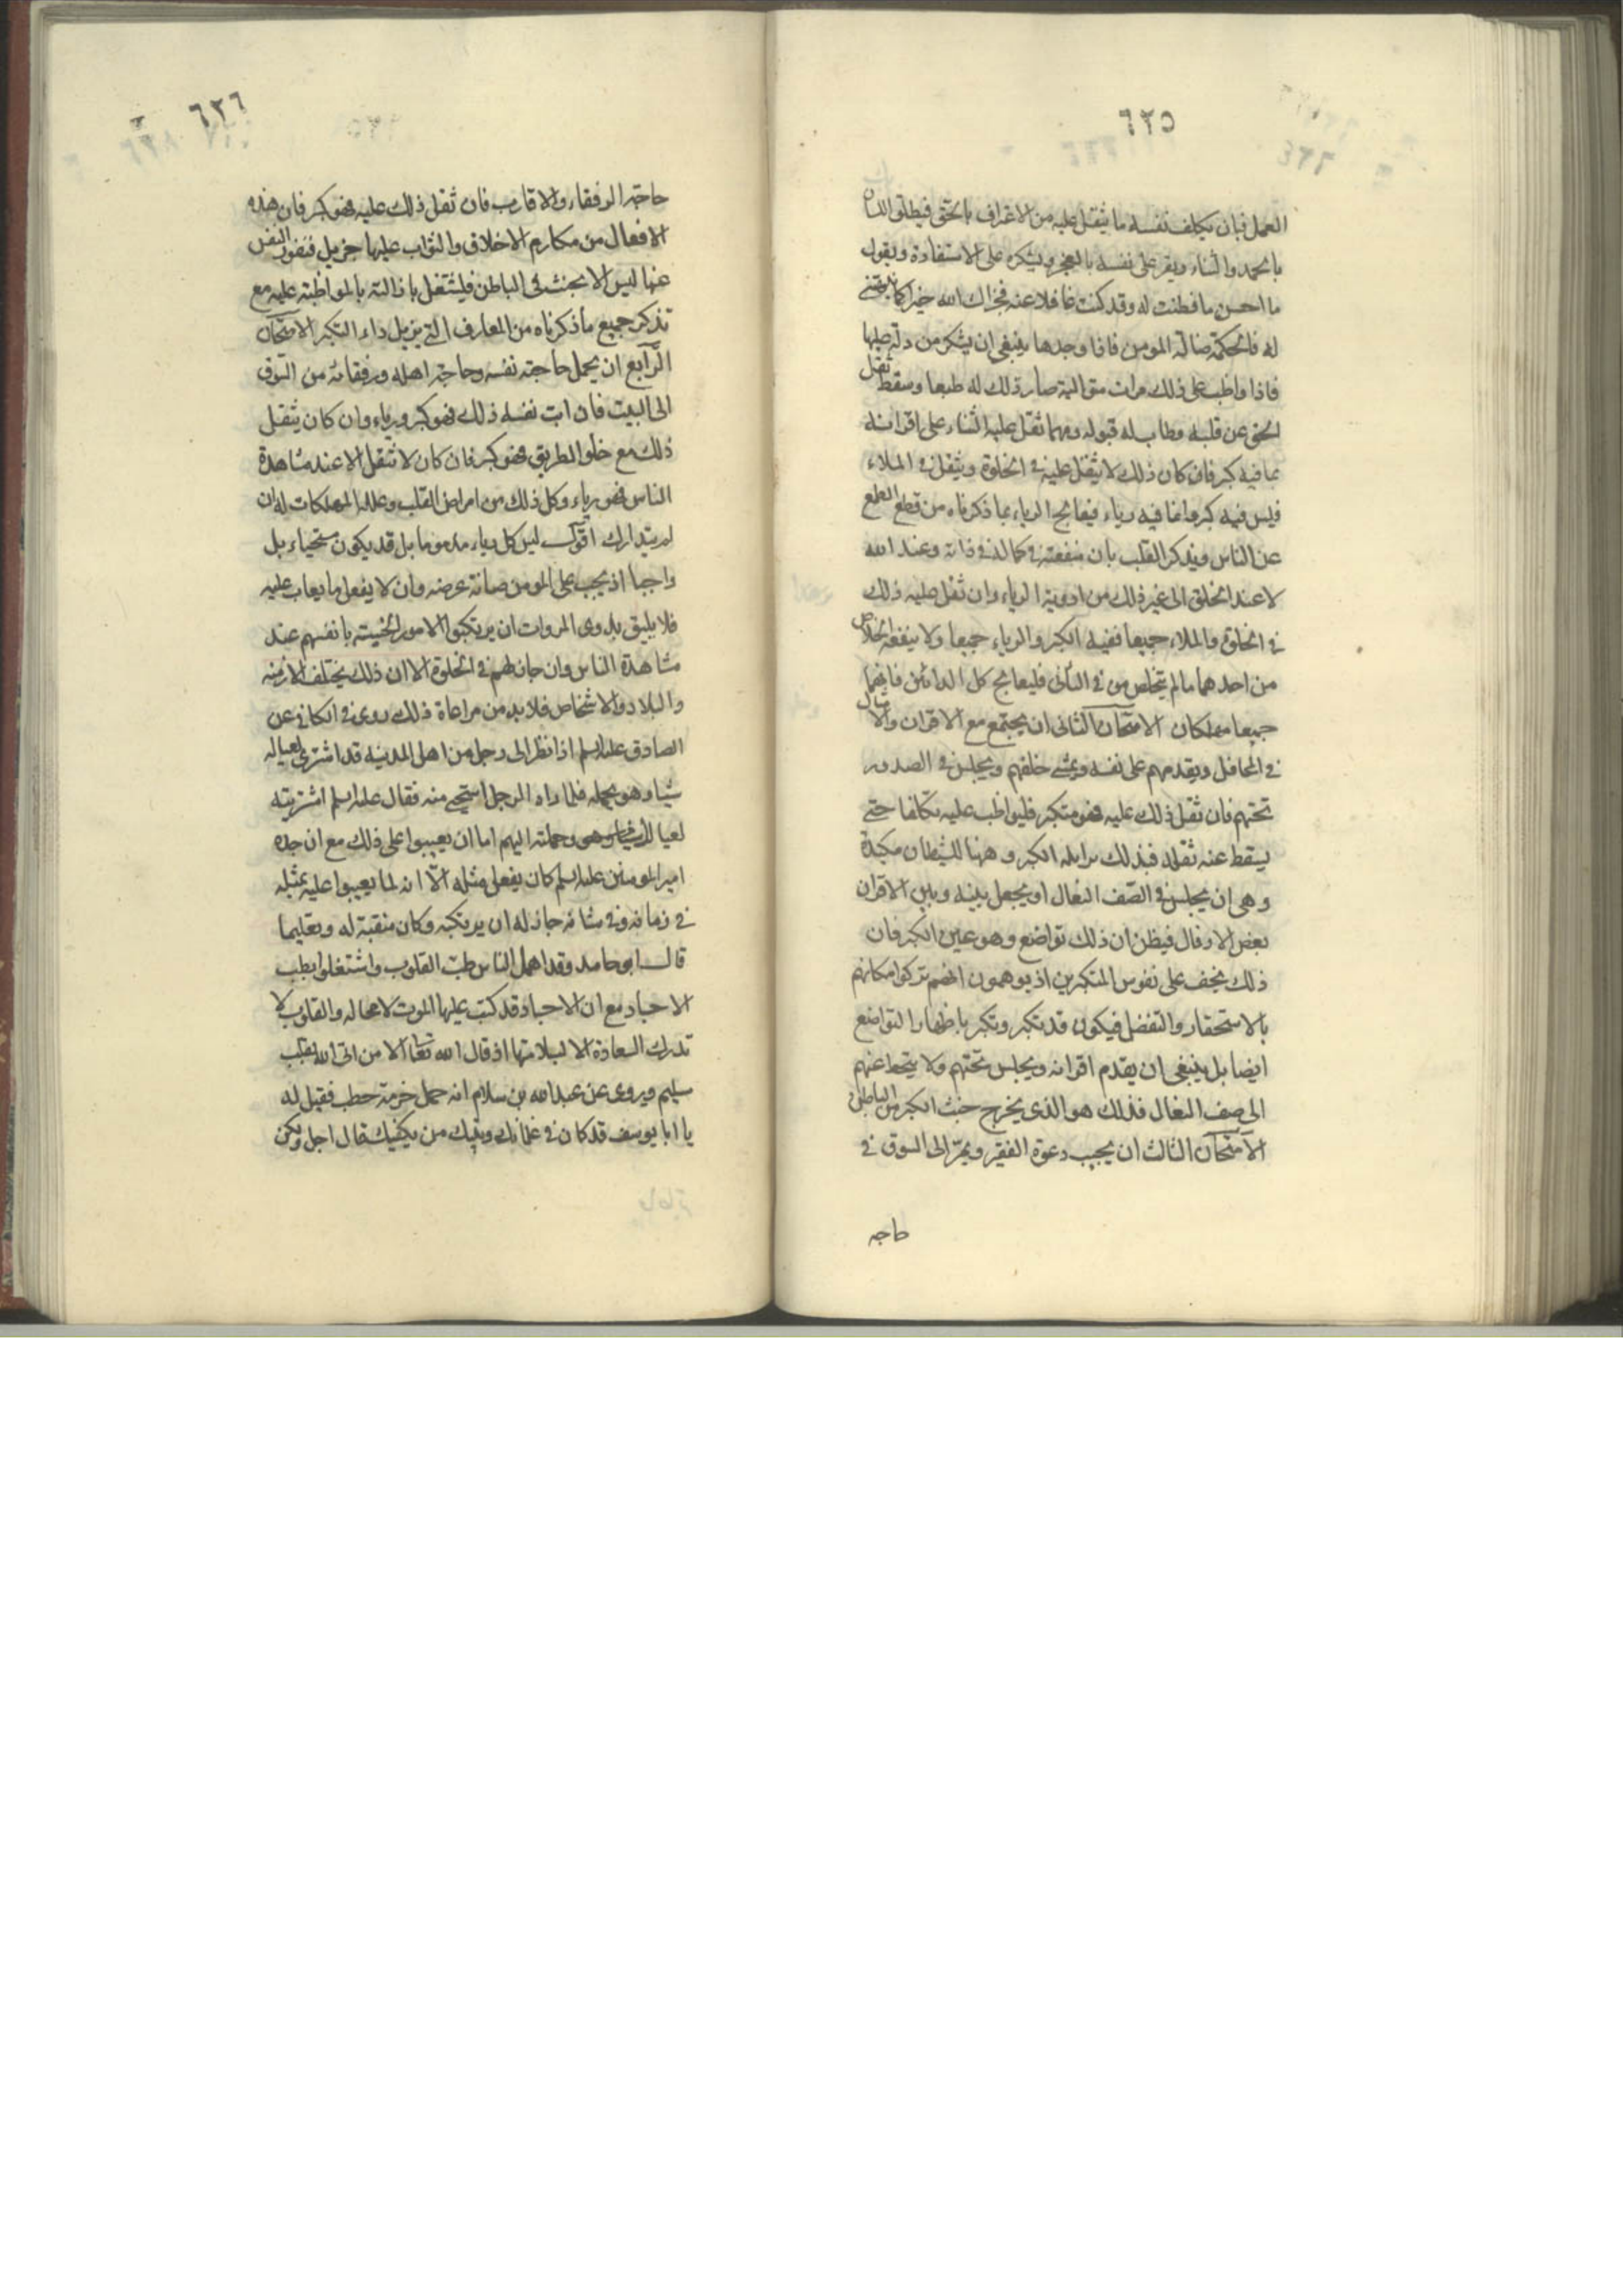 ٦٢٥
العمل فبان يكلف نفسه ما يثقل عليه من الاعتراف بالحق فيطلق اللسان
بالحمد والثناء ويقر على نفسه بالعجز ويشكره على الاستفادة ويقول
ما احسن ما فطنت له وقد كنت غافلا عنه فجزاك الله خيرا كما نبهتنى
له فالحكمة ضالة المومن فاذا وجدها ينبغى ان يشكر من دله عليها
فاذا واظب على ذلك مرات متوالية صار ذلك له طبعا وسقط ثقل
الحق عن قلبه وطاب له قبوله ومهما ثقل عليه الثناء على اقرانه
بما فيه كبر فان كان ذلك لا يثقل عليه فى الخلوة ويثقل فى الملاء
فليس فيه كبر وانما فيه رياء فيعالج الرياء بما ذكرناه من قطع الطمع
عن الناس ويذكر القلب بان منفعته فى كماله فى ذاته وعند الله
لا عند الخلق الى غير ذلك من ادوية الرياء وان ثقل عليه ذلك
فى الخلوة والملاء جميعا ففيه الكبر والرياء جميعا ولا ينفعه الخلاص
من احدهما ما لم يتخلص من فى الثانى فليعالج كل الدائين فانهما
جميعا مهلكان الامتحان الثانى ان يجتمع مع الاقران والامثال
فى المحافل ويقدمهم على نفسه ويمشى خلفهم ويجلس فى الصدور
تحتهم فان ثقل ذلك عليه فهو متكبر فليواظب عليه تكلفا حتى
يسقط عنه ثقله فبذلك يزايله الكبر وههنا للشيطان مكيدة
وهى ان يجلس فى الصّف النعال او يجعل بينه وبين الاقران
بعض الارذال فيظن ان ذلك تواضع وهو عين الكبر فان
ذلك يخف على نفوس المتكبرين اذ يوهمون انهم تركوا مكانهم
بالاستحقار والتفضل فيكون قد تكبر وتكبر باظهار التواضع
ايضا بل ينبغى ان يقدم اقرانه ويجلس تحتهم ولا ينحط عنهم
الى صف النعال فذلك هو الذى يخرج خبث الكبر من الباطن
الامتحان الثالث ان يجيب دعوة الفقير ويمرّ الى السوق فى
حاجه
٦٢٦
حاجة الرفقاء والاقارب فان ثقل ذلك عليه فهو كبر فان هذه
الافعال من مكارم الاخلاق والثواب عليها جزيل فنفور النفس
عنها ليس الا بخبث فى الباطن فليشتغل بازالته بالمواظبة عليه مع
تذكر جميع ما ذكرناه من المعارف التى يزيل داء التكبر الامتحان
الرّابع ان يحمل حاجة نفسه وحاجة اهله ورفقائه من السّوق
الى البيت فان ابت نفسه ذلك فهو كبر ورياء وان كان يثقل
ذلك مع خلو الطريق فهو كبر فان كان لا تثقل الا عند مشاهدة
الناس فهو رياء وكل ذلك من امراض القلب وعلله المهلكات له ان
لم يتدارك اقول ليس كل رياء مذموما بل قد يكون مستحبا بل
واجبا اذ يجب على المومن صيانة عرضه وان لا يفعل ما يعاب عليه
فلا يليق بذوى المروات ان يرتكبوا الامور الخسيسة بانفسهم عند
مشاهدة الناس وان جاز لهم فى الخلوة الا ان ذلك يختلف الازمنه
والبلاد والاشخاص فلا بد من مراعاة ذلك روى فى الكافى عن
الصادق عليه السلم اذا نظر الى رجل من اهل المدينه قد اشترى لعياله
شيئا وهو يحمله فلما راه الرجل استحيى منه فقال عليه السلم اشتريته
لعيالك وحملته اليهم اما ان يعيبوا على ذلك مع ان جده
امير المومنين عليه السلم كان يفعل مثله الّا انه لما يعيبوا عليه بمثله
فى زمانه وفى شانه جاز له ان يرتكبه وكان منقبة له وتعليما
قال ابو حامد وقد اهمل الناس طبّ القلوب واشتغلوا بطب
الاجساد مع ان الاجساد قد كتب عليها الموت لا محاله والقلوب لا
تدرك السعادة الا بسلامتها اذ قال الله تعالى الا من اتى الله بقلب
سليم ويروى عن عبد الله بن سلام انه حمل حزمة حطب فقيل له
يا ابا يوسف قد كان فى غلمانك وبنيك من يكفيك قال اجل ولكن